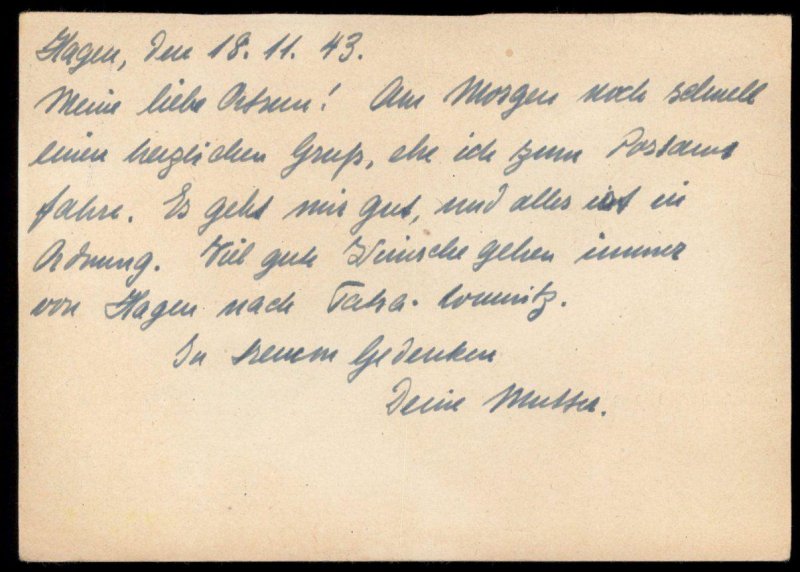 Hagen, den 18.11.43.
Meine liebe! Am Morgen noch schnell
einen herzlichen Gruß, ehe ich zum Postamt
fahre. Es geht mir gut, und alles ist in
Ordnung. Viel gute Wünsche gehen immer
von Hagen nach Tatra-Lomnitz.
In treuem Gedenken
Deine Mutter.